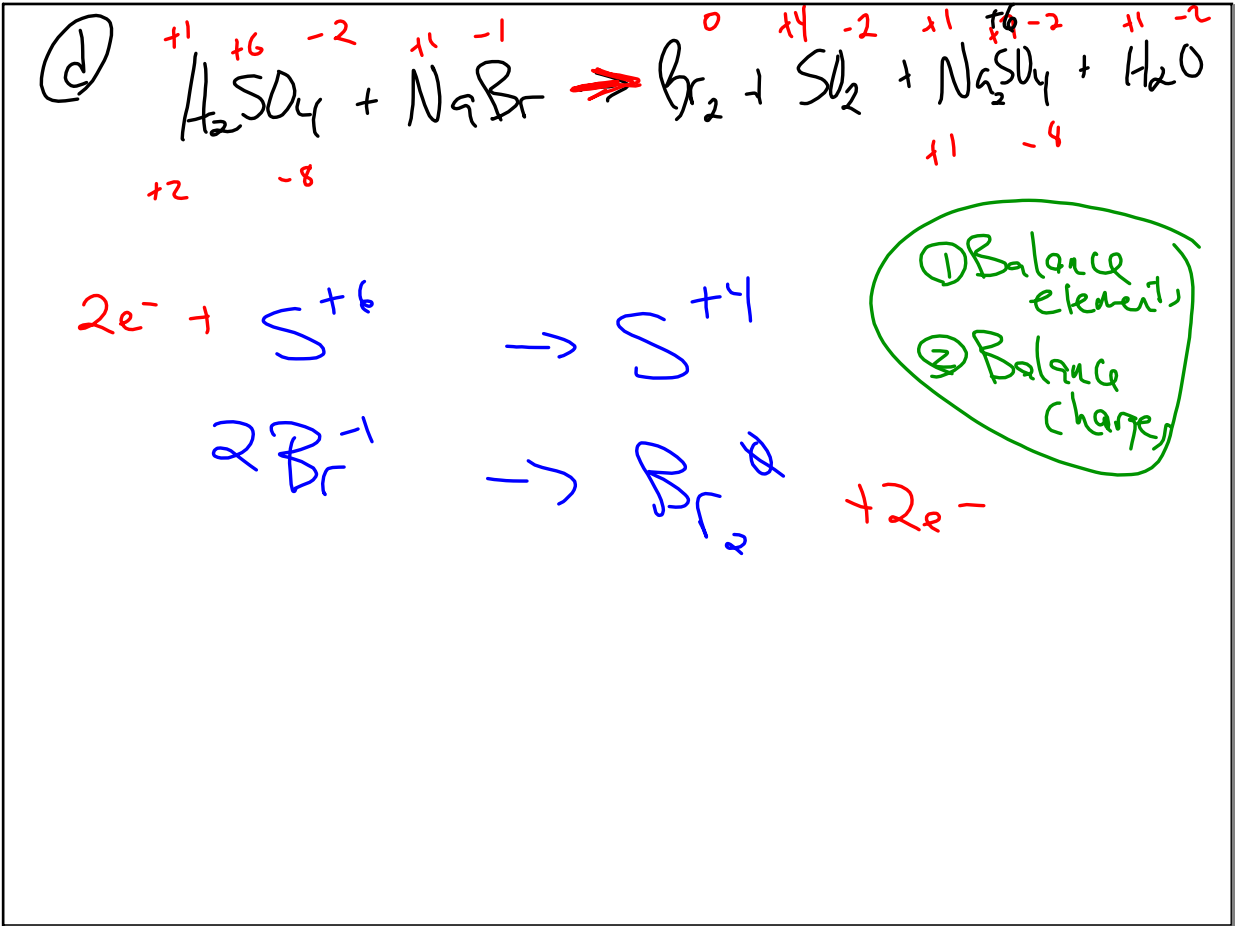 +1 +6 -2 +1 -1 0 +4 -2 +1 +6 -2 +1 -2
d H₂SO₄ + NaBr → Br₂ + SO₂ + Na₂SO₄ + H₂O
+2 -8 +1 -8
① Balance
elements
2e⁻ + S⁺⁶ → S⁺⁴
② Balance
charges
2Br⁻¹ → Br₂⁰ + 2e⁻